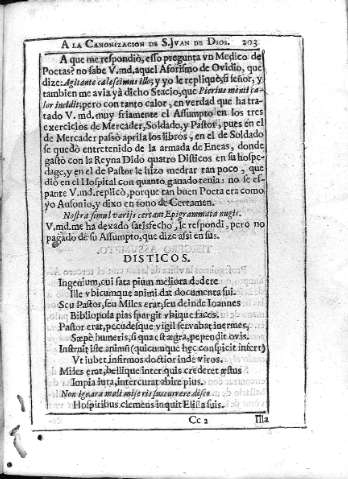 A LA CANONIZACION DE S. JVAN DE DIOS. 203
A que me respondiò, esso pregunta vn Medico de
Poetas? no sabe V.md, aquel Aforismo de Ovidio, que
dize: Agitante calescimus illo; y yo le repliquè, si señor, y
tambien me avia yà dicho Stacio, que Pierius menti ca-
lor incidit; pero con tanto calor, en verdad que ha tra-
tado V. md. muy friamente el Assumpto en los tres
exercicios de Mercader, Soldado, y Pastor, pues en el
de Mercader passò aprisa los libros, en el de Soldado
se quedò entretenido de la armada de Eneas, donde
gastò con la Reyna Dido quatro Disticos en su hospe-
dage, y en el de Pastor le luzo medrar tan poco, que
diò en el Hospital con quanto ganado tenia: no se es-
pante V.md. replicò, porque tan buen Poeta era como
yo Ausonio, y dixo en tono de Certamen.
Nostra simul varijs certant Epigrammata nugis.
V.md. me ha dexado satisfecho, le respondi, pero no
pagado de su Assumpto, que dize assi en sus.
DISTICOS.
Ingenium, cui fata pium meliora dedere
Ille vbicumque animi dat documenta sui.
Seu Pastor, seu Miles erat, seu deinde Ioannes
Bibliopola pias spargit vbique faces.
Pastor erat, pecudesque vigil servabat inermes,
Sæpè humeris, si qua est ægra, pependit ovis.
Instruit iste animi (quicumque hęc conspicit infert)
Vt iubet, infirmos doctior inde viros.
Miles erat, bellique inter quis crederet æstus
Impia iura, intercurat abire pius.
Non ignara mali miseris succurrere disco
Hospitibus clemens inquit Elisa suis.
Cc 2 Illa